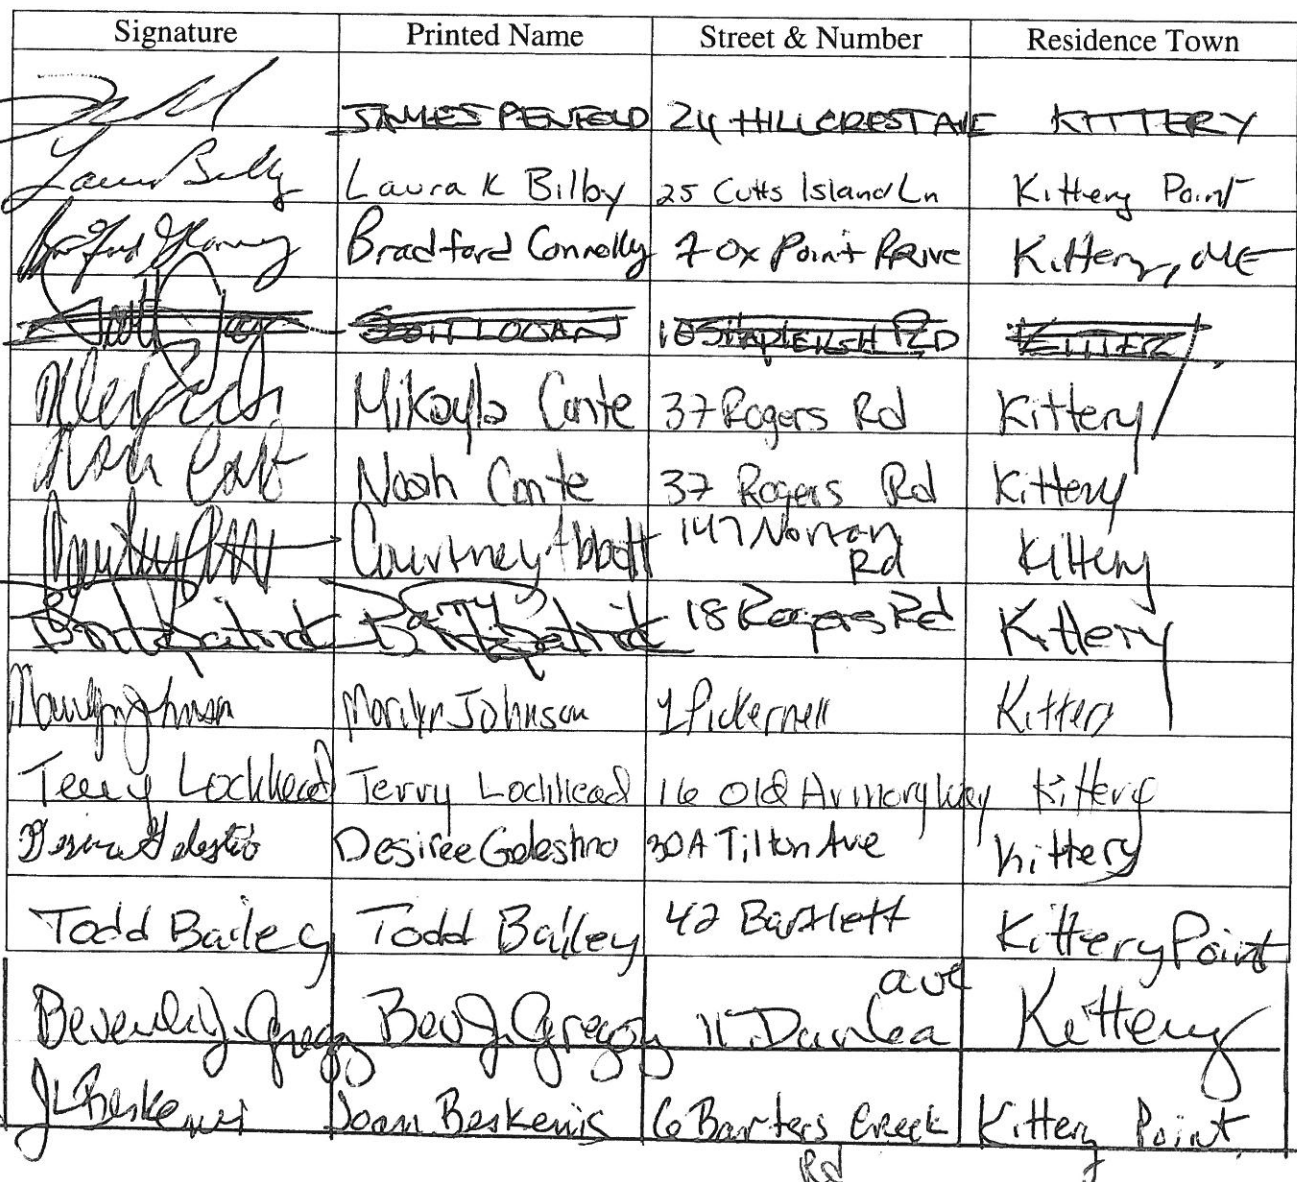 Signature Printed Name Street & Number Residence Town
JAMES PENFELD 24 HILLCREST AVE KITTERY
Laura K Bilby 25 Cutts Island Ln Kittery Point
Bradford Connolly 7 Ox Point Drive Kittery, ME
SCOTT LOGAN 10 STAPLEIGH RD KITTERY
Mikayla Conte 37 Rogers Rd Kittery
Noah Conte Noah Conte 37 Rogers Rd Kittery
Courtney Abbott 147 Norton Rd Kittery
Barry Fitzpatrick 18 Rogers Rd Kittery
Marilyn Johnson Marilyn Johnson 1 Pickernell Kittery
Terry Lockhead Terry Lockhead 16 Old Armory Way Kittery
Desiree Gelestino 30A Tilton Ave Kittery
Todd Bailey Todd Bailey 42 Bartlett Kittery Point
Beverly J. Gregg Bev J. Gregoy 11 Danlea ave Kittery
JL Beskenis Joan Beskenis 6 Barters Creek Rd Kittery Point